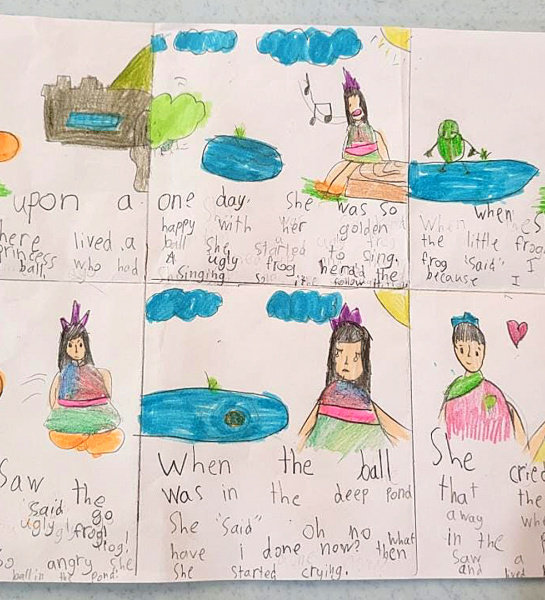 upon a
here lived a
princess who had
ball
one day, she was so
happy with her golden
ball she started to sing.
A ugly frog heard the
singing
When
the little frog
frog "said" I
because
Saw the
"said" go
ugly frog!
so angry she
ball in the pond.
When the ball
was in the deep pond
She "said" oh no what
have i done now? then
She started crying.
She cried
that the
away
in the
saw a
and lived